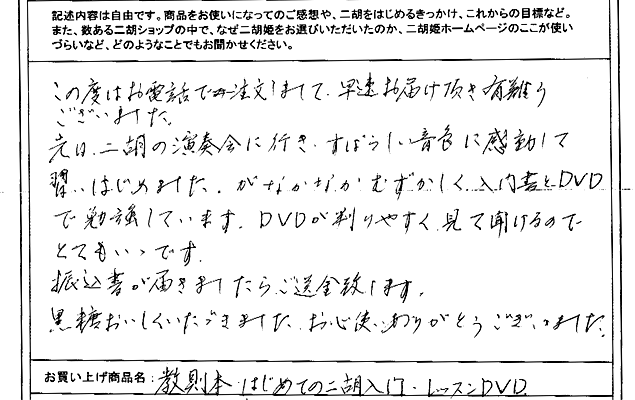 記述内容は自由です。商品をお使いになってのご感想や、二胡をはじめるきっかけ、これからの目標など。
また、数ある二胡ショップの中で、なぜ二胡姫をお選びいただいたのか、二胡姫ホームページのここが使い
づらいなど、どのようなことでもお聞かせください。
この度はお電話で注文しまして、早速お届け頂き有難う
ございました。
先日、二胡の演奏会に行き、すばらしい音色に感動して
習いはじめました。がなかなかむずかしく、入門書とDVD
で勉強しています。DVDが判りやすく、見て聞けるので
とてもいいです。
振込書が届きましたらご送金致します。
黒糖おいしくいただきました。お心使いありがとうございました。
お買い上げ商品名：教則本・はじめての二胡入門・レッスンDVD